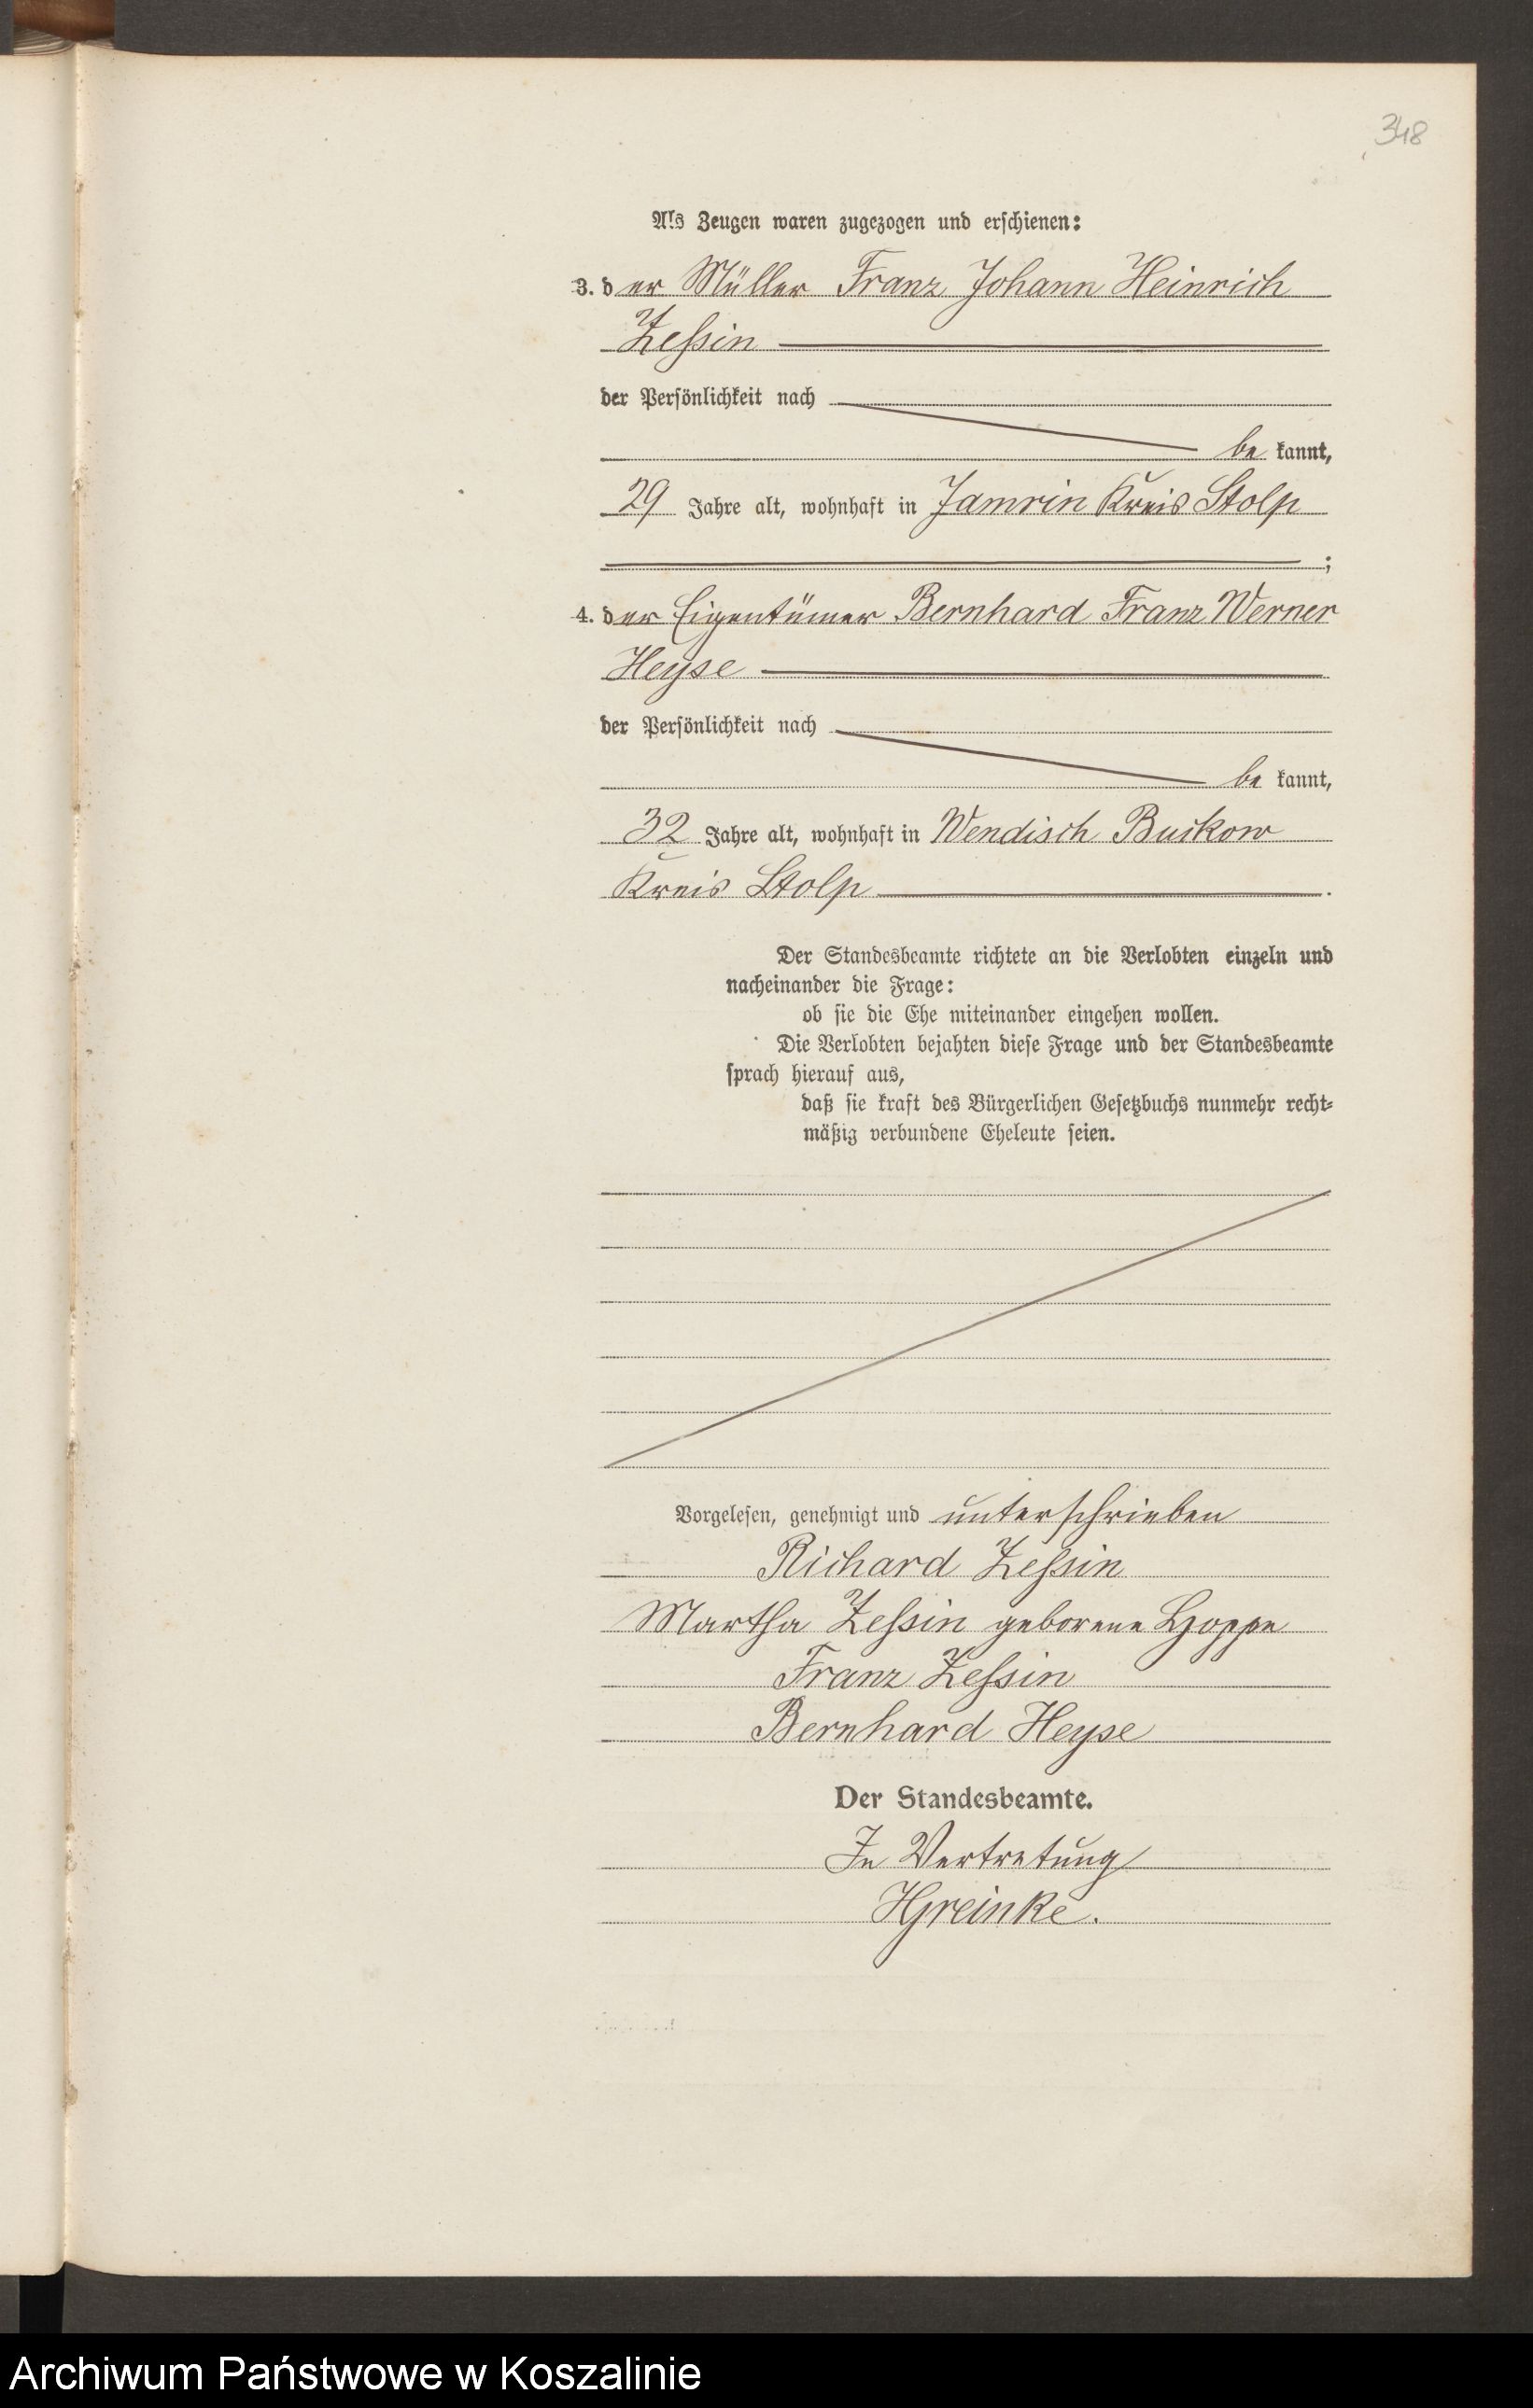 348
Als Zeugen waren zugezogen und erschienen:
3. der Müller Franz Johann Heinrich
Zessin
der Persönlichkeit nach
be kannt,
29 Jahre alt, wohnhaft in Jamrin Kreis Stolp
;
4. der Eigentümer Bernhard Franz Werner
Heyse
der Persönlichkeit nach
be kannt,
32 Jahre alt, wohnhaft in Wendisch Buckow
Kreis Stolp.
Der Standesbeamte richtete an die Verlobten einzeln und
nacheinander die Frage:
ob sie die Ehe miteinander eingehen wollen.
Die Verlobten bejahten diese Frage und der Standesbeamte
sprach hierauf aus,
daß sie kraft des Bürgerlichen Gesetzbuchs nunmehr recht-
mäßig verbundene Eheleute seien.
Vorgelesen, genehmigt und unterschrieben
Richard Zessin
Martha Zessin geborene Hoppe
Franz Zessin
Bernhard Heyse
Der Standesbeamte.
In Vertretung
HGreinke.
Archiwum Państwowe w Koszalinie